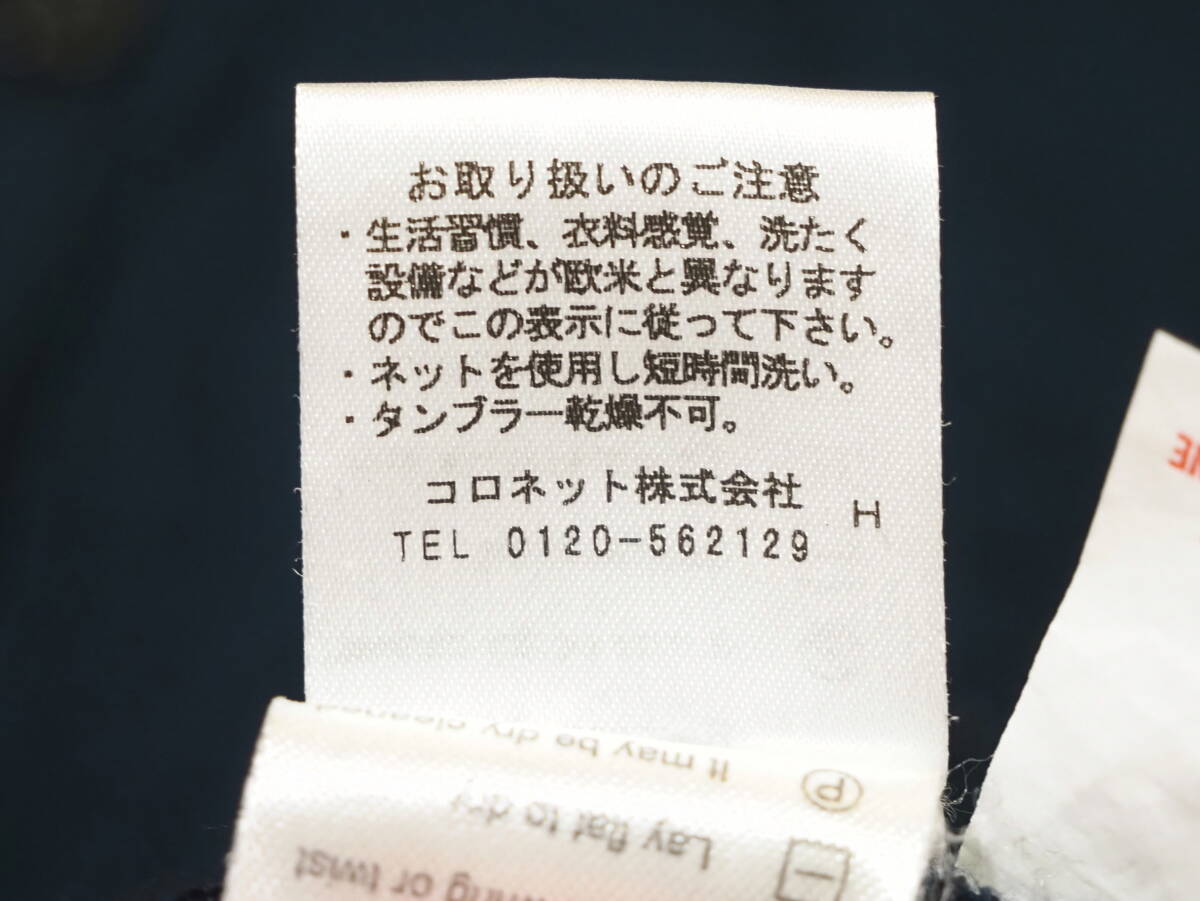 お取り扱いのご注意
・生活習慣、衣料感覚、洗たく
設備などが欧米と異なります
のでこの表示に従って下さい。
・ネットを使用し短時間洗い。
・タンブラー乾燥不可。
コロネット株式会社
H
TEL 0120-562129
It may be dry cleaned
P
Lay flat to dry
or twist